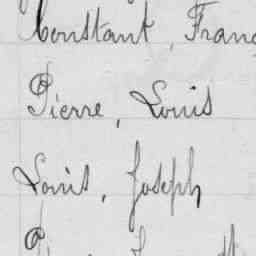 Constant, Franç
Pierre, Louis
Louis, Joseph